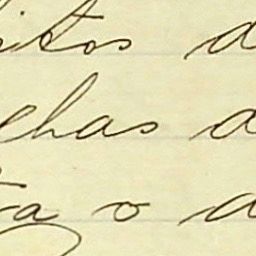 itos d
lhas d
ta o d